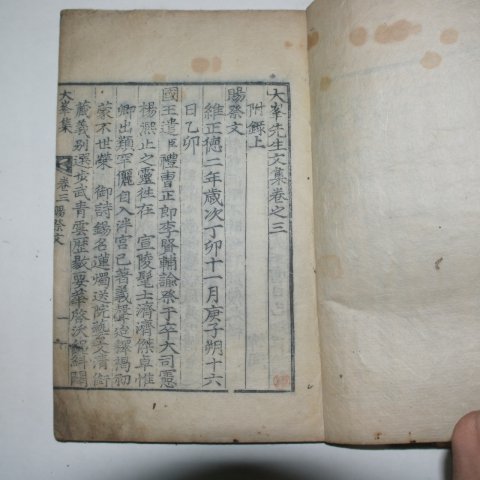 大峯先生文集卷之三
附錄上
賜祭文
維正德二年歲次丁卯十一月庚子朔十六
日乙卯
國王遣臣禮曹正郎李賢輔諭祭于卒大司憲
楊熙止之靈往在 宣陵髦士濟濟傑卓惟
卿出類罕儷自入泮宮已著義聲忠謨揭初
蒙不世榮 御詩錫名蓮燭送院藝文清銜
薇義別選
武青雲歷敭要華
大峯集
卷三 賜祭文
一